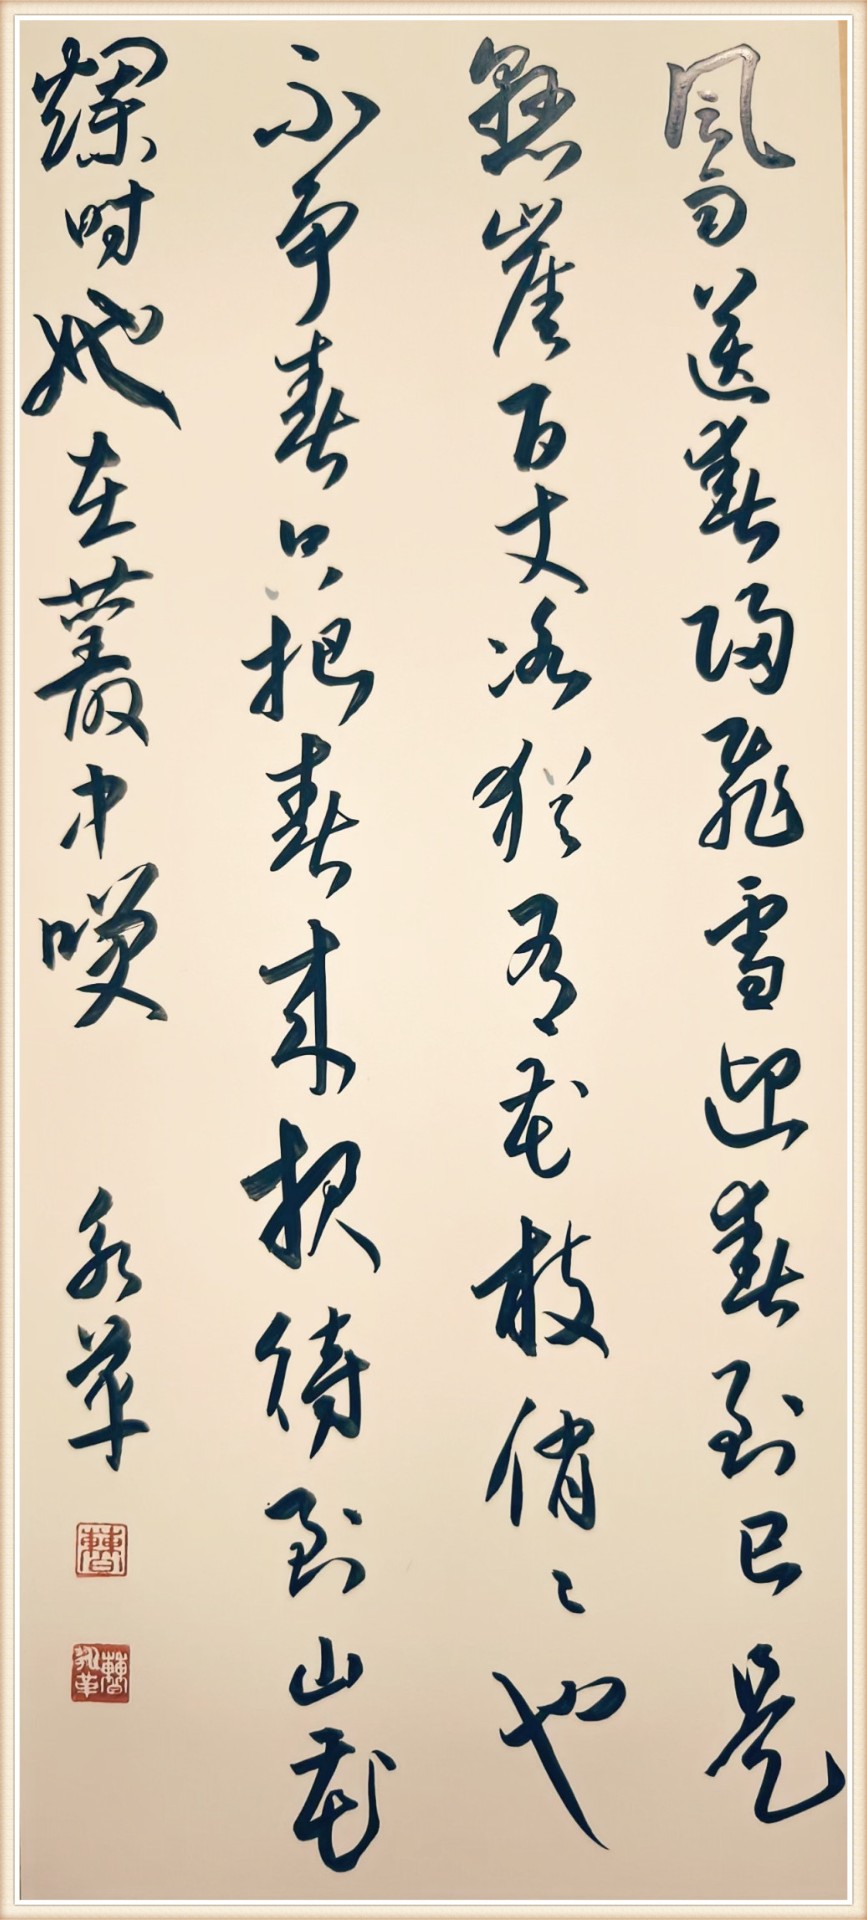 風雨送春歸飛雪迎春到已是
懸崖百丈冰猶有花枝俏々也
不争春只把春来报待到山花
爛時她在叢中咲